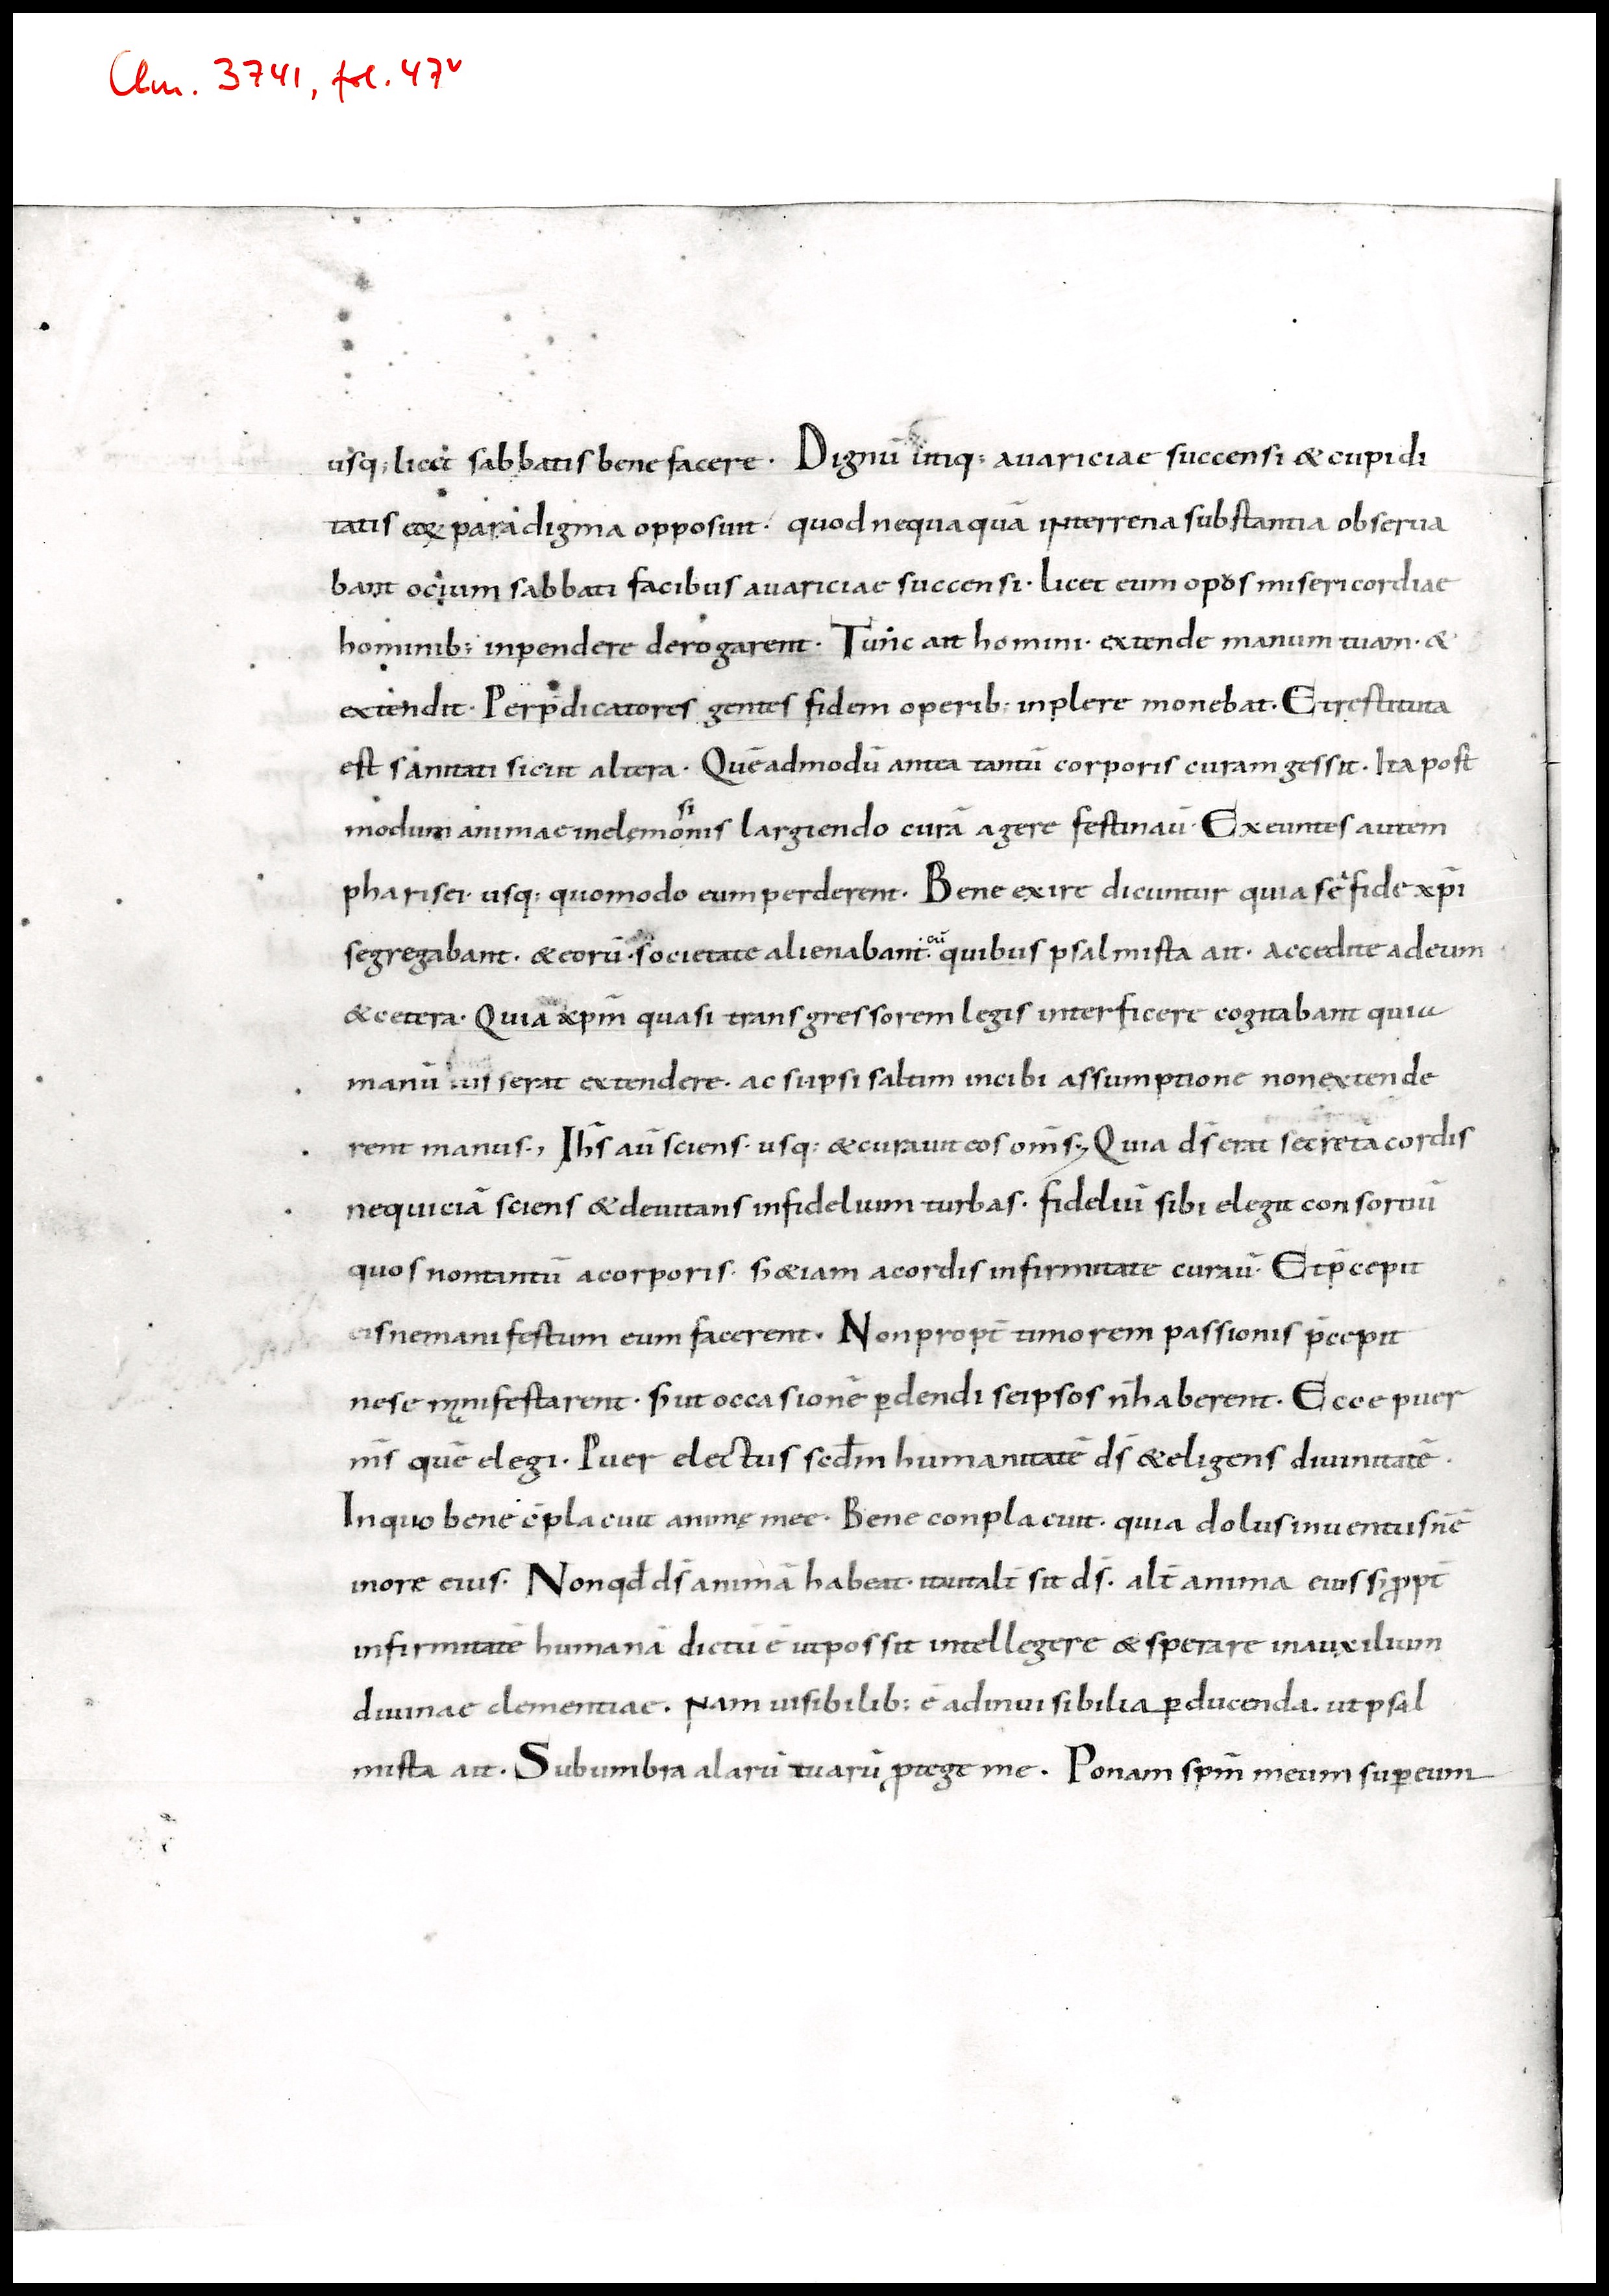 Clm. 3741, fol. 47v
usq; licet sabbatis bene facere. Dignū utiq; auariciae succensi & cupidi
tatis paradigma opposuit. quod nequaquā interrena substantia obserua
bant ocium sabbati facibus auariciae succensi. licet eum opus misericordiae
hominib; inpendere derogarent. Tunc ait homini. extende manum tuam. &
extendit. Per p̄dicatores gentes fidem operib; inplere monebat. Et restituta
est sanitati sicut altera. Quēadmodū antea tantū corporis curam gessit. Ita post
modum animae inelemosinis largiendo curā agere festinau̅. Exeuntes autem
pharisei. usq; quomodo eum perderent. Bene exire dicuntur quia sē fide xp̄i
segregabant. & eorū societate alienabant. cū quibus psalmista ait. accedite ad eum
& cetera. Quia xpm̄ quasi transgressorem legis interficere cogitabant quia
manū iusserat extendere. ac si ipsi saltim incibi assumptione non extende
rent manus., Ihs̄ au̅ sciens. usq; & curauit eos om̄s; Quia ds̄ erat secreta cordis
nequiciā sciens & deuitans infidelium turbas. fideliū sibi elegit consortiū
quos nontantū acorporis. s̄ &iam acordis infirmitate curau̅. Et p̄cepit
eis nemanifestum eum facerent. Non propt̄ timorem passionis p̄cepit
nese manifestarent. s̄ ut occasionē ꝑdendi seipsos n̄ haberent. Ecce puer
m̄s quē elegi. Puer electus scdm̄ humanitatē ds̄ & eligens diuinitatē.
Inquo bene c̄placuit animę mee. Bene conplacuit. quia dolus inuentus n̄ ē
inore eius. Non qd̄ ds̄ animā habeat. ut ut alt̄ sit ds̄. alt̄ anima eius s̄ ꝓpt̄
infirmitatē humanā dictū ē ut possit intellegere & sperare inauxilium
diuinae clementiae. Nam uisibilib; ē adinuisibilia ꝑducenda. ut psal
mista ait. Subumbra alarū tuarū ꝓtege me. Ponam spm̄ meum suꝑ eum